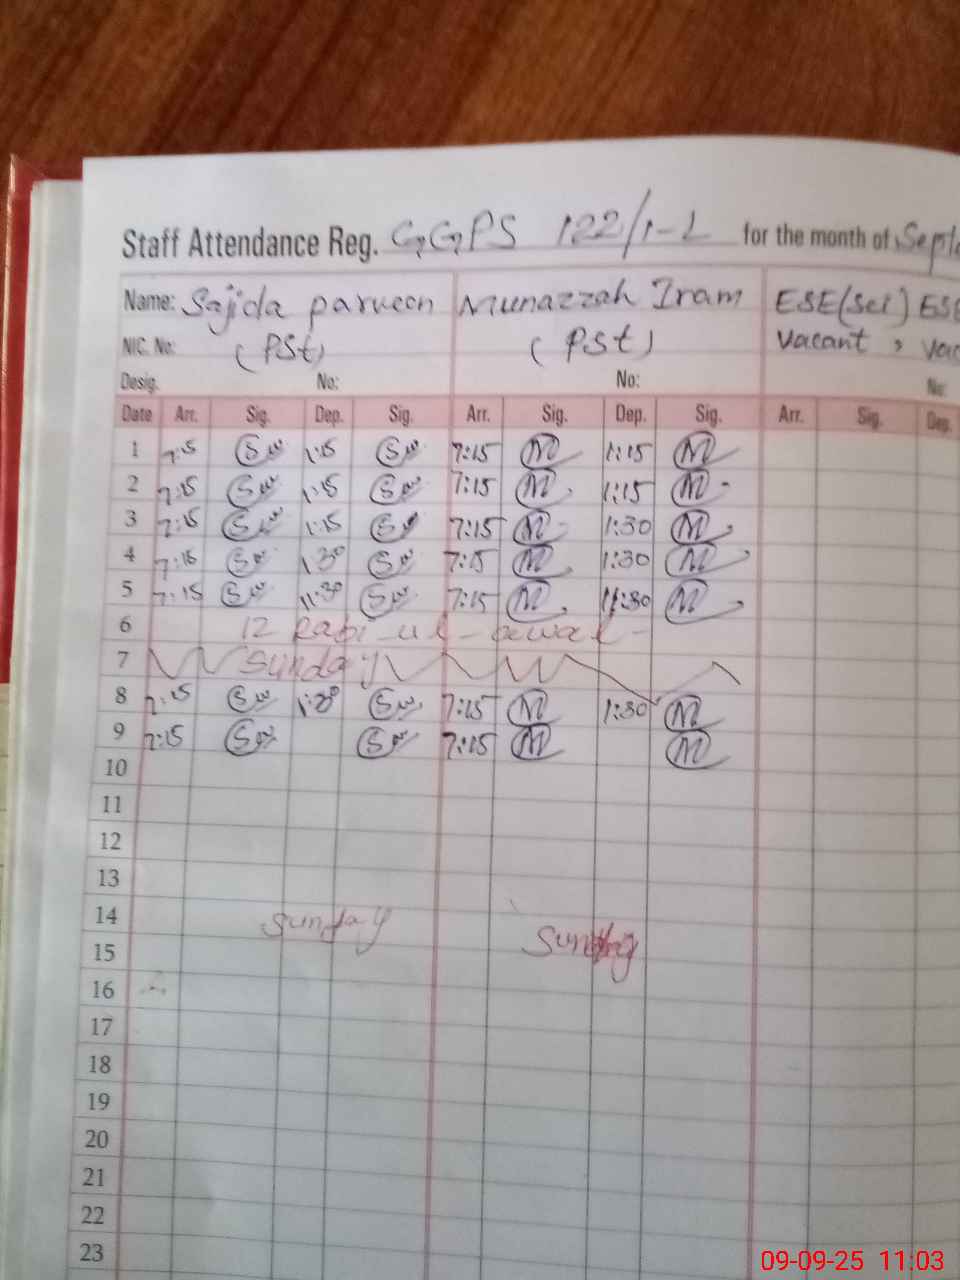 Staff Attendance Reg. G.G.PS 122/1-L for the month of Septe
Name: Sajida parveen Munazzah Iram ESE(Sci) ESE
NIC. No: (PSt) (PSt) Vacant, vac
Desig. No: No: No:
Date Arr. Sig. Dep. Sig. Arr. Sig. Dep. Sig. Arr. Sig. Dep.
1 7:15 1:15 7:15 M 1:15 M
2 7:15 1:15 7:15 M 1:15 M
3 7:15 1:15 7:15 M 1:30 M
4 7:15 1:30 7:15 M 1:30 M
5 7:15 11:30 7:15 M 11:30 M
6 12 Rabi-ul-awal-
7 Sunday
8 7:15 1:30 7:15 M 1:30 M
9 7:15 7:15 M M
10
11
12
13
14 Sunday Sunday
15
16
17
18
19
20
21
22
23
09-09-25 11:03